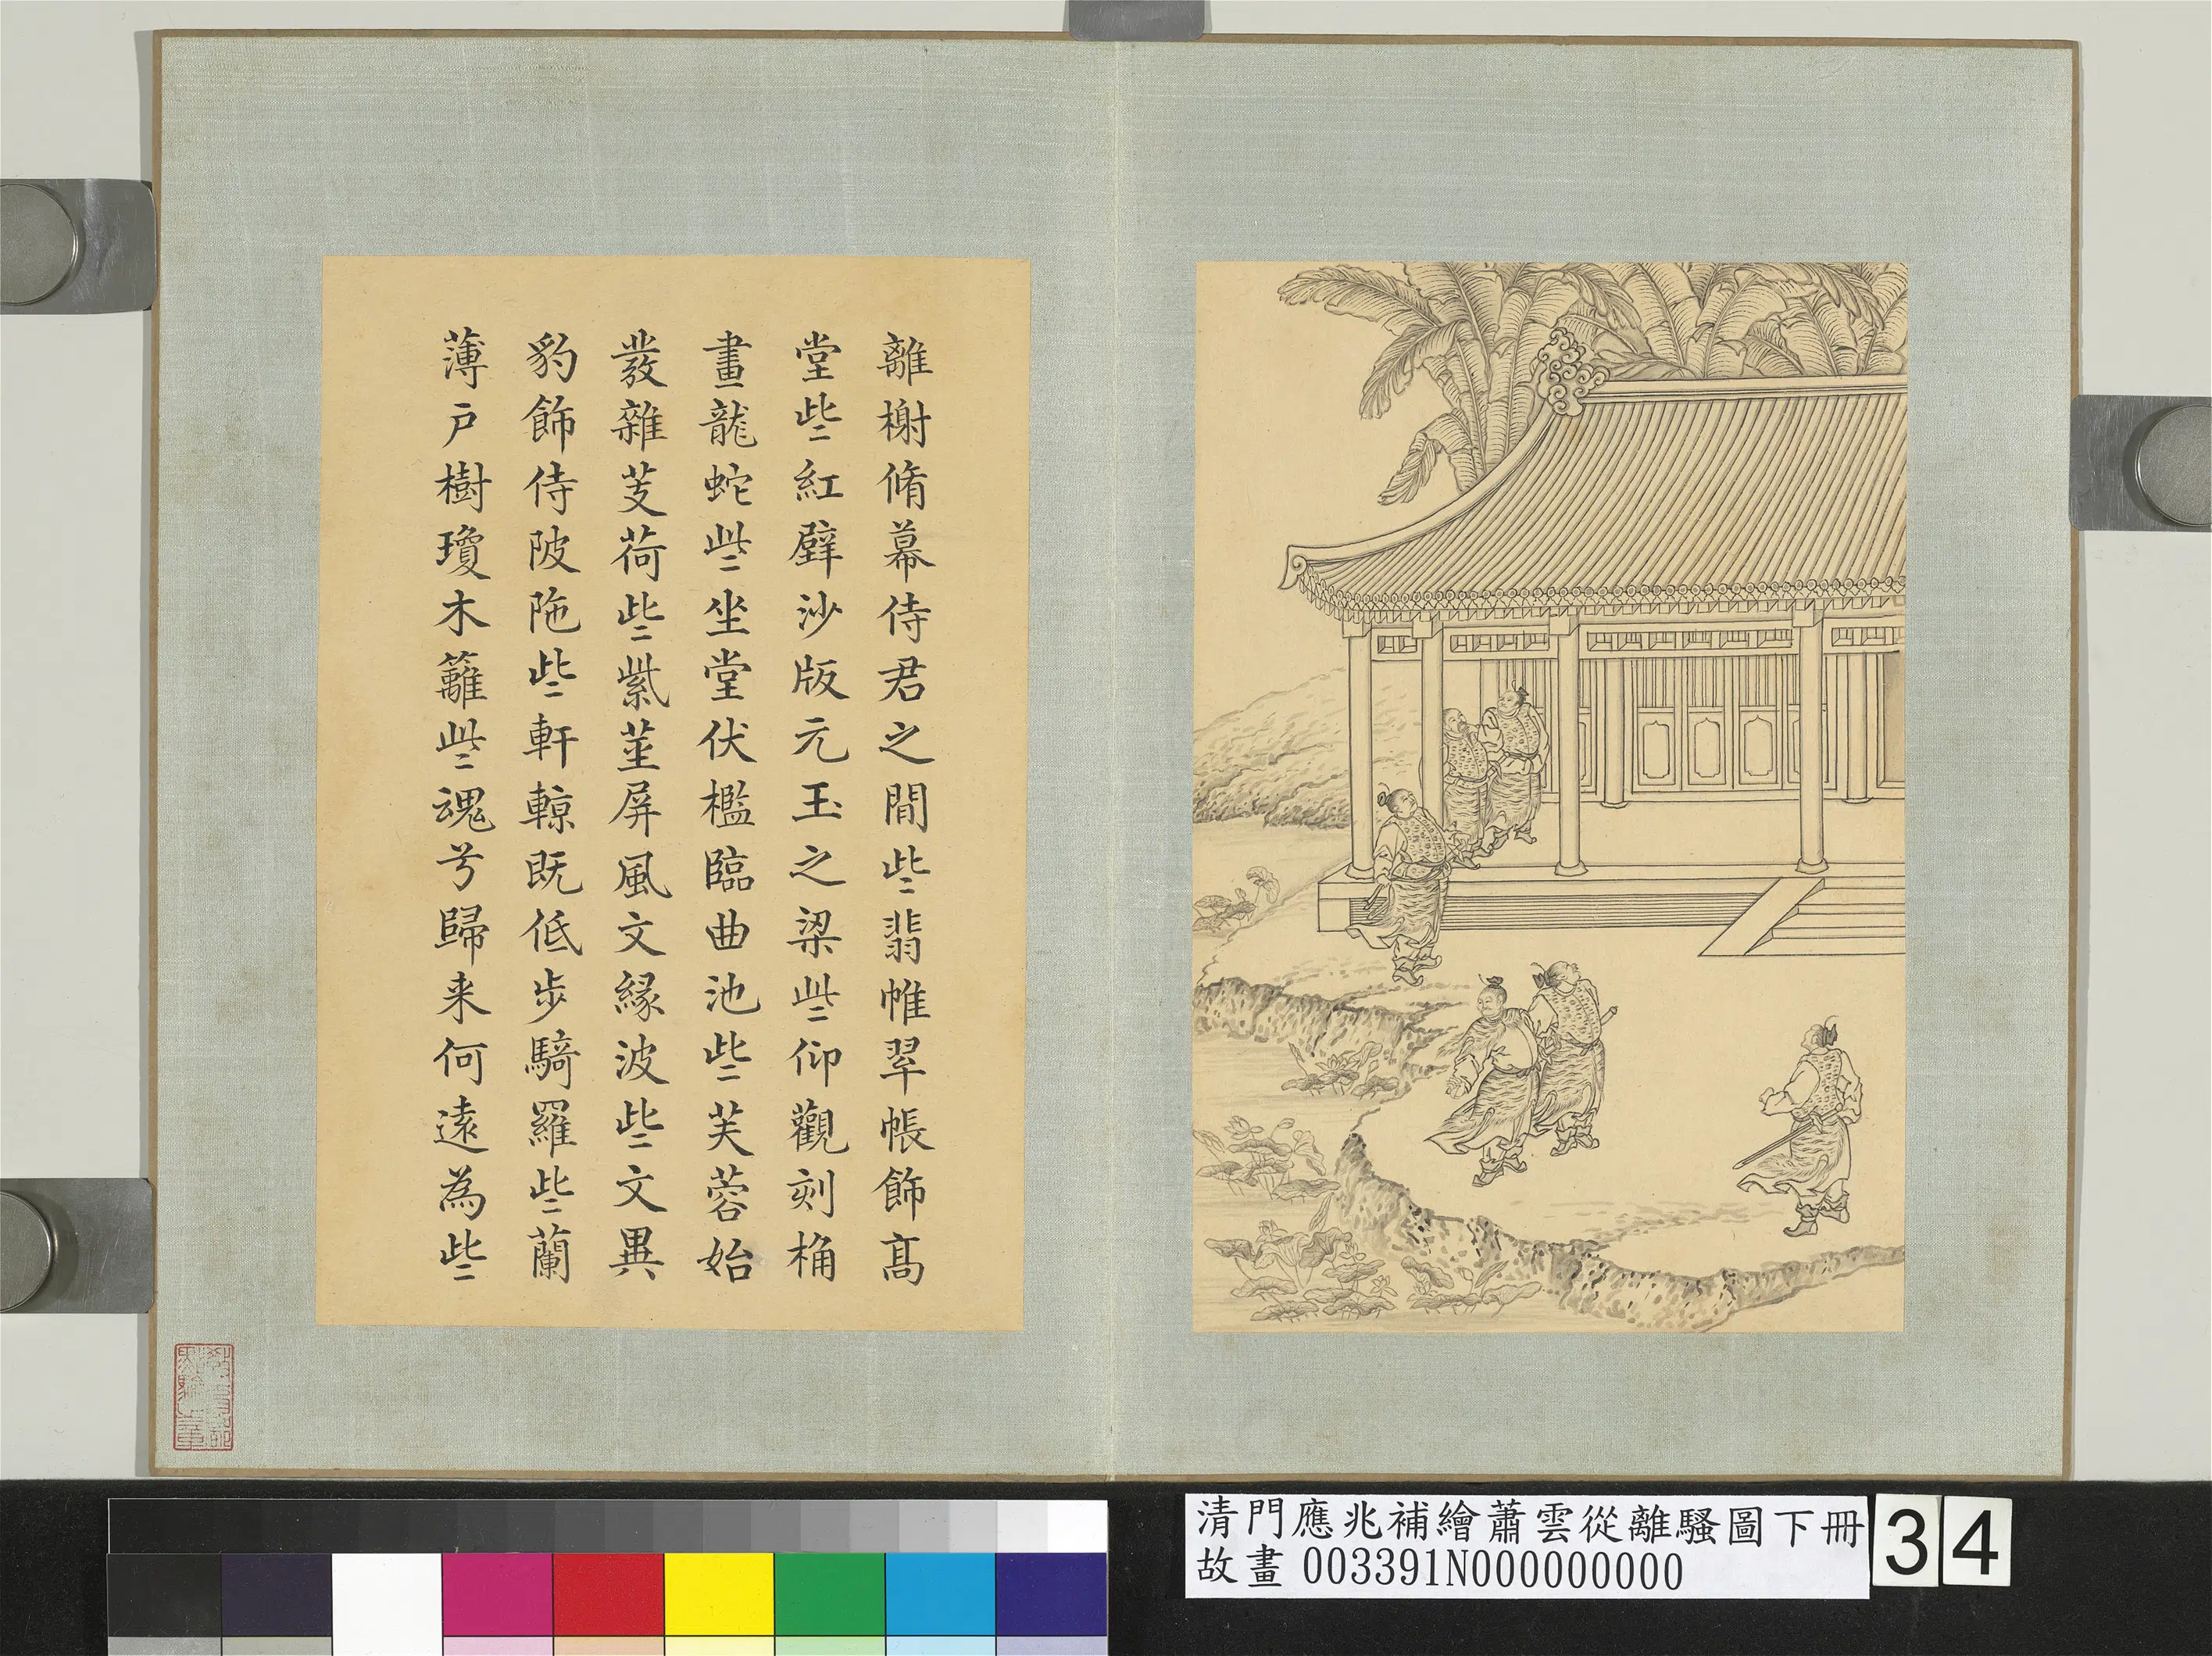 離榭脩幕侍君之閒些翡帷翠帳飾髙
堂些紅壁沙版元玉之梁些仰觀刻桷
畫龍蛇些坐堂伏檻臨曲池些芙蓉始
發雜芰荷些紫莖屏風文緣波些文異
豹飾侍陂陁些軒輬既低步騎羅些蘭
薄戶樹瓊木籬些魂兮歸来何遠為些
清門應兆補繪蕭雲從離騷圖下冊
故畫 003391N000000000
34